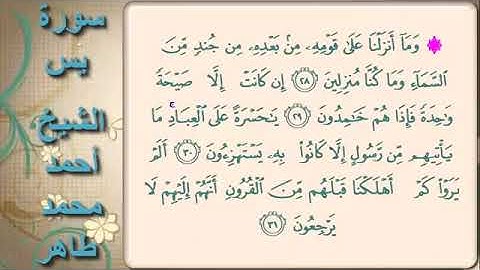 سورة
يس
الشيخ
أحمد
محمد
طاهر
وَمَآ أَنزَلْنَا عَلَىٰ قَوْمِهِۦ مِنۢ بَعْدِهِۦ مِن جُندٍ مِّنَ
ٱلسَّمَآءِ وَمَا كُنَّا مُنزِلِينَ ٢٨ إِن كَانَتْ إِلَّا صَيْحَةً
وَٰحِدَةً فَإِذَا هُمْ خَٰمِدُونَ ٢٩ يَٰحَسْرَةً عَلَى ٱلْعِبَادِ ۚ مَا
يَأْتِيهِم مِّن رَّسُولٍ إِلَّا كَانُوا۟ بِهِۦ يَسْتَهْزِءُونَ ٣٠ أَلَمْ
يَرَوْا۟ كَمْ أَهْلَكْنَا قَبْلَهُم مِّنَ ٱلْقُرُونِ أَنَّهُمْ إِلَيْهِمْ لَا
يَرْجِعُونَ ٣١